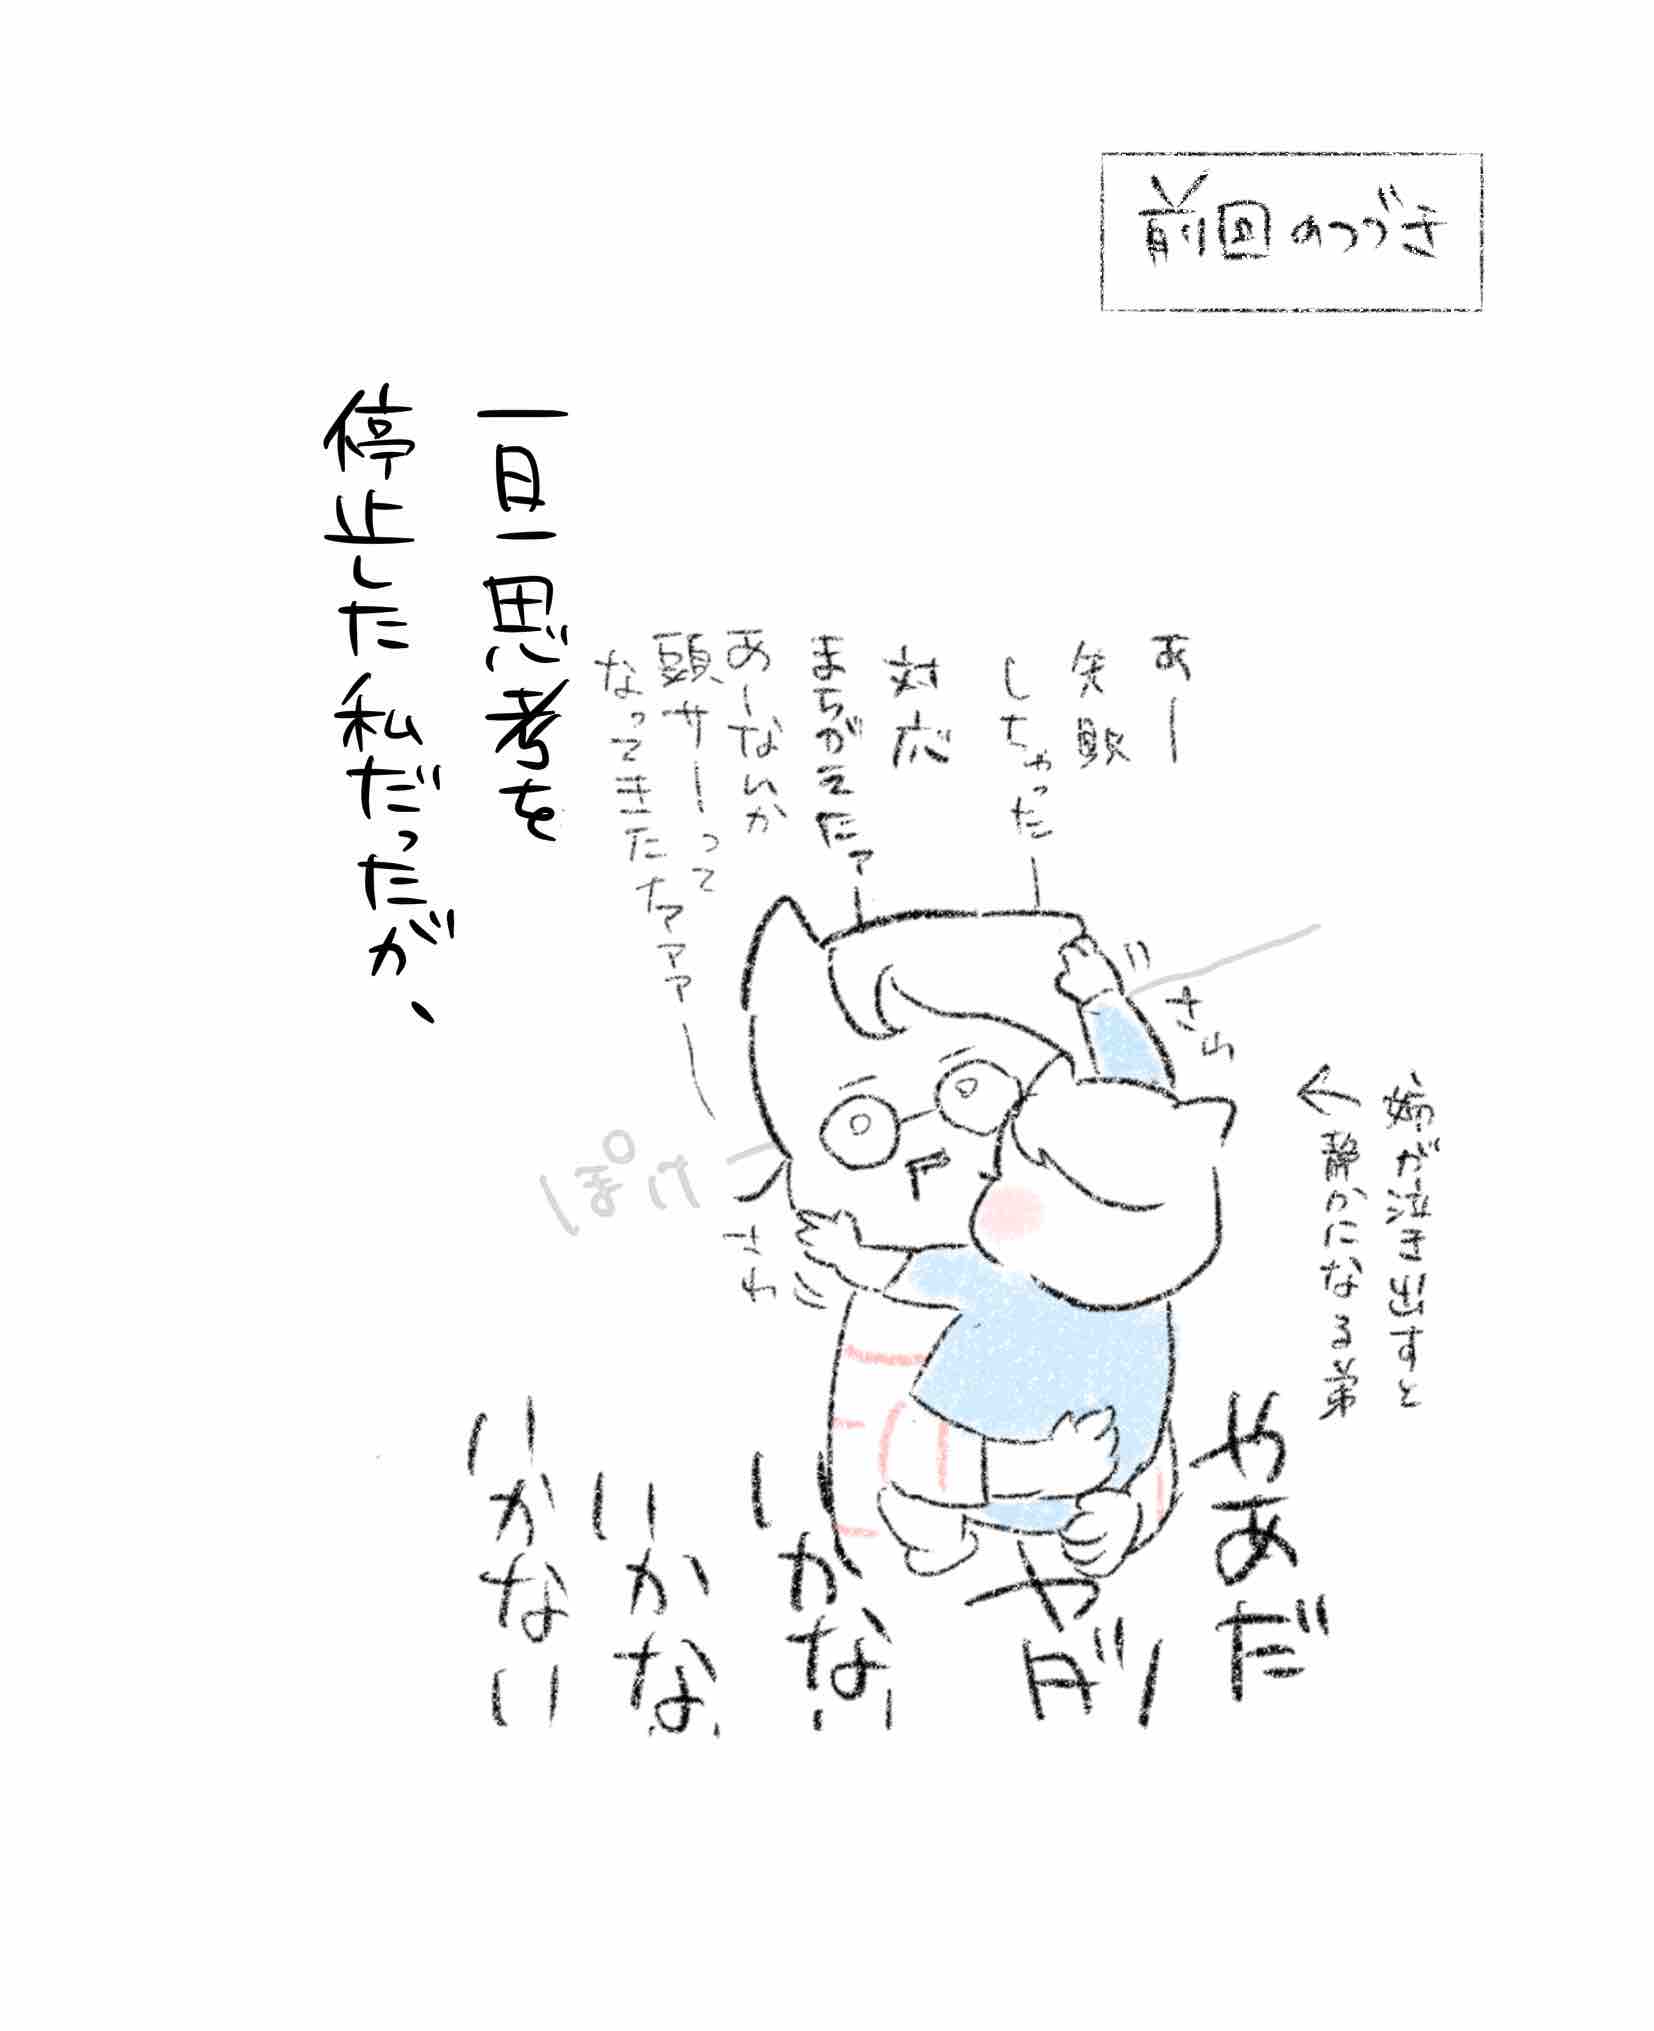 前回のつづき
あー
失敗
しちゃった
対応
まちがえたァ
あーなんか
頭サーって
なってきたナァァァ
一旦思考を
停止した私だったが、
さわ
さわ
姉が泣き出すと
静かになる弟
やあだ
やダッ
いかない
いかない
いかない